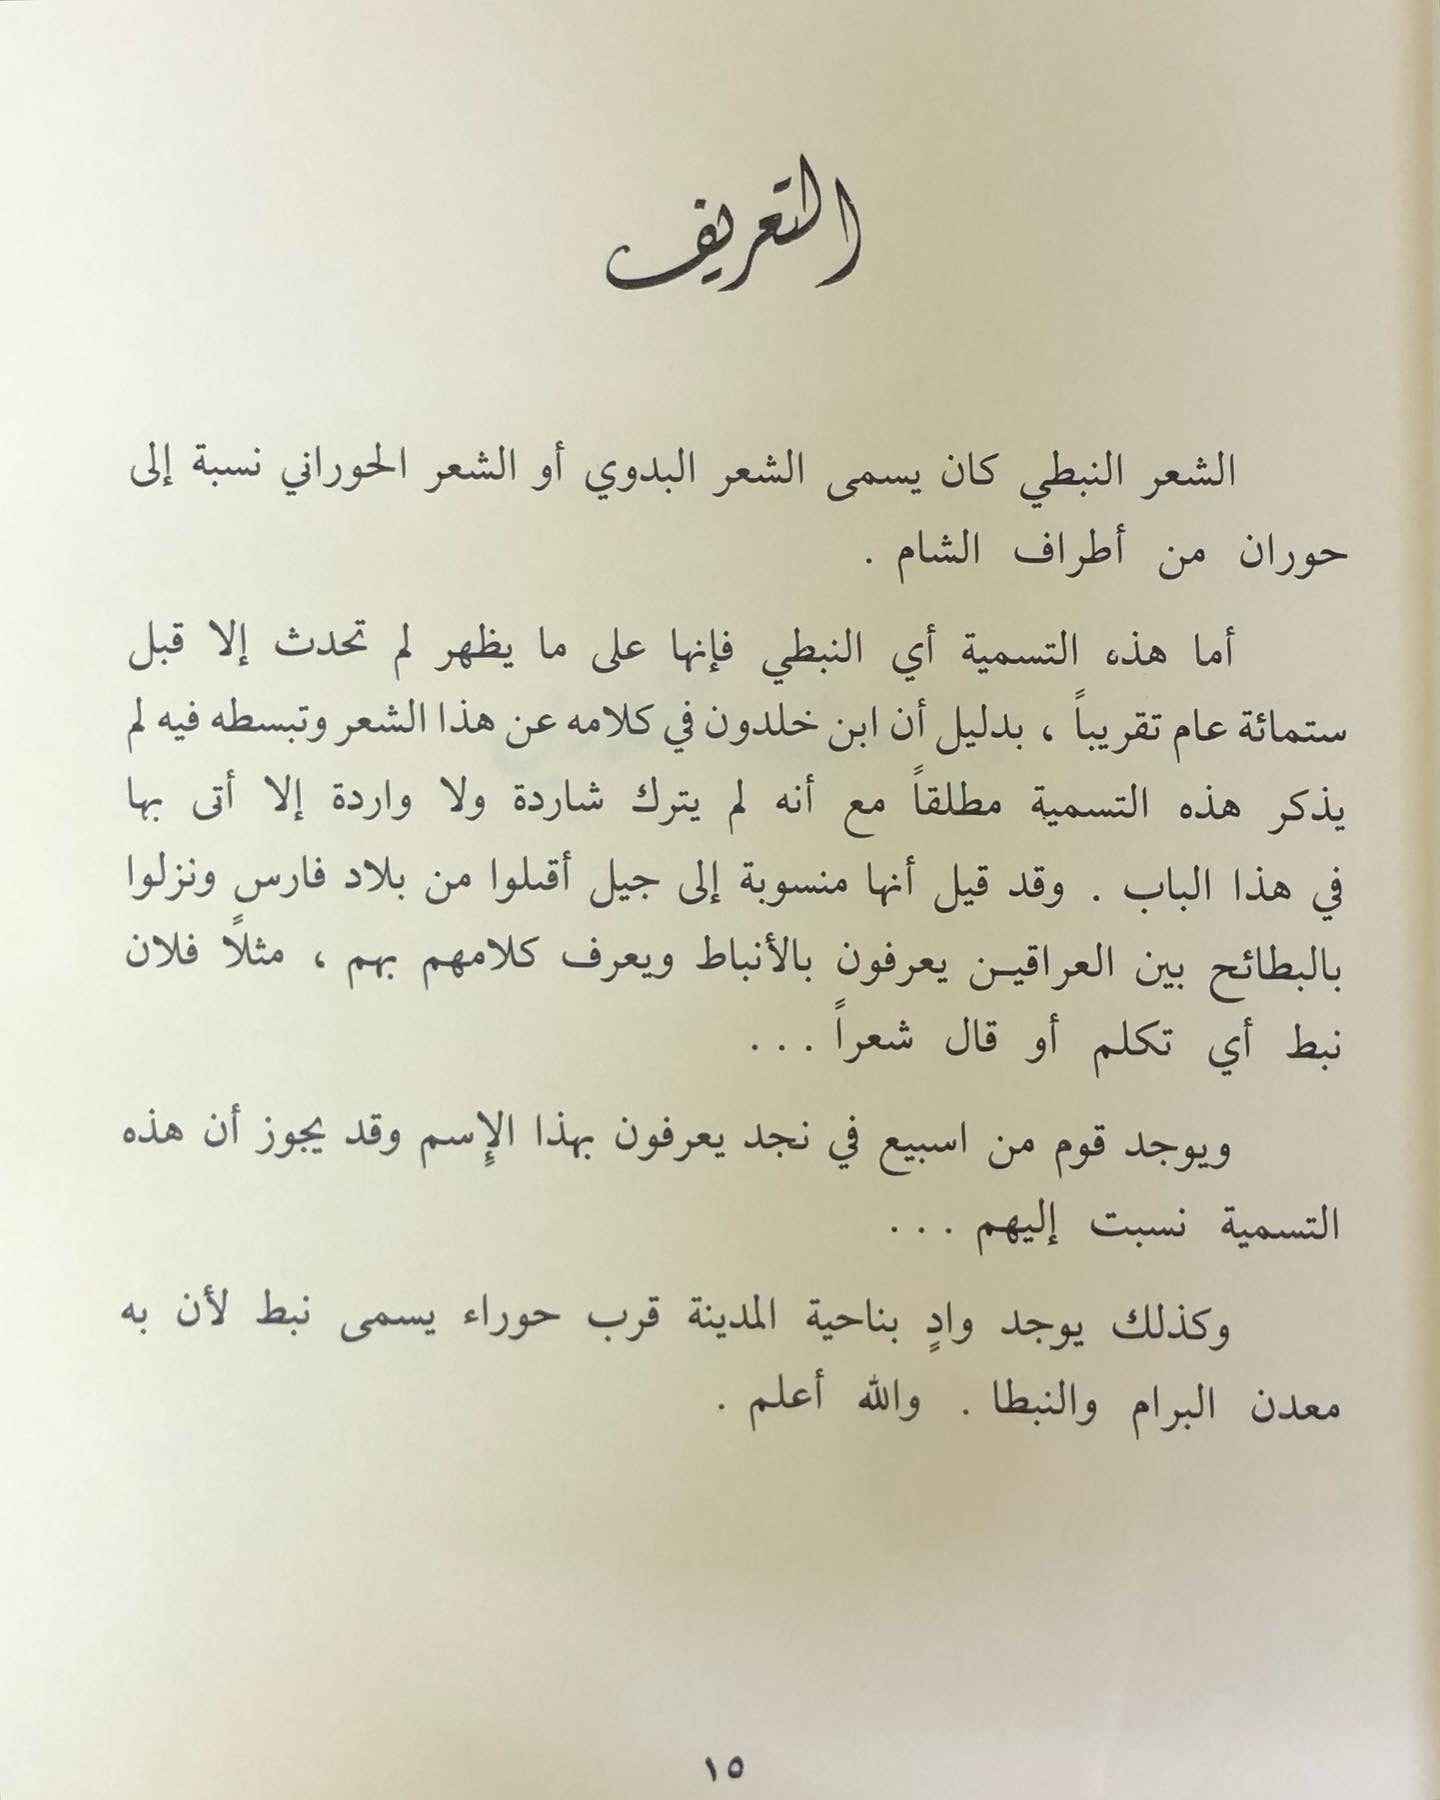 التعريف
الشعر النبطي كان يسمى الشعر البدوي أو الشعر الحوراني نسبة إلى
حوران من أطراف الشام .
أما هذه التسمية أي النبطي فإنها على ما يظهر لم تحدث إلا قبل
ستمائة عام تقريباً ، بدليل أن ابن خلدون في كلامه عن هذا الشعر وتبسطه فيه لم
يذكر هذه التسمية مطلقاً مع أنه لم يترك شاردة ولا واردة إلا أتى بها
في هذا الباب . وقد قيل أنها منسوبة إلى جيل أقبلوا من بلاد فارس ونزلوا
بالبطائح بين العراقيـن يعرفون بالأنباط ويعرف كلامهم بهم ، مثلاً فلان
نبط أي تكلم أو قال شعراً ...
ويوجد قوم من اسبيع في نجد يعرفون بهذا الإِسم وقد يجوز أن هذه
التسمية نسبت إليهم ...
وكذلك يوجد وادٍ بناحية المدينة قرب حوراء يسمى نبط لأن به
معدن البرام والنبطا . والله أعلم .
١٥